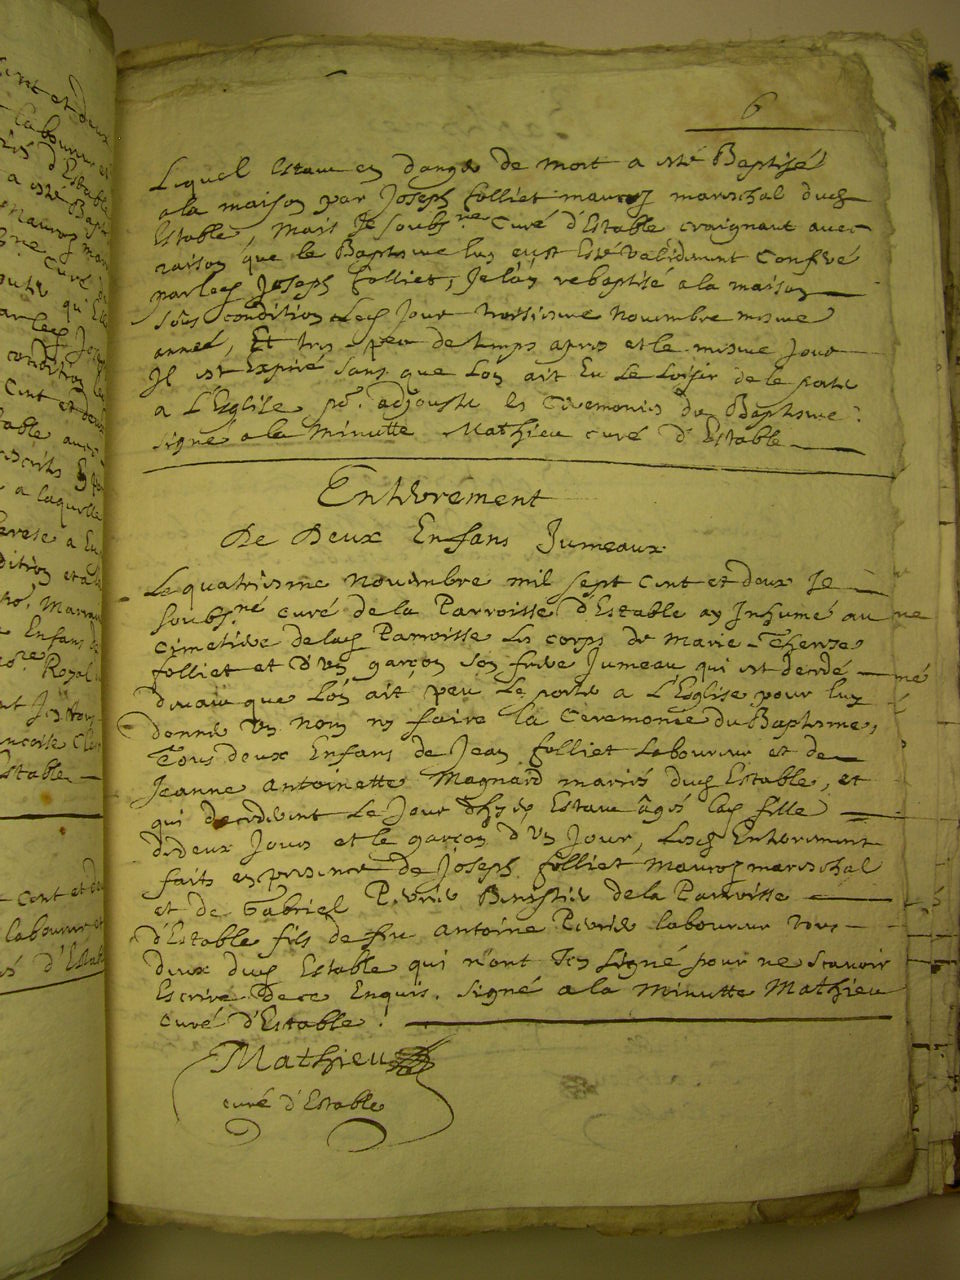 6
Lequel estant en danger de mort a esté Baptisé
a la maison par Joseph folliet mareschal dud
Estable, mais Je soubs.né curé d'Estable craignant avec
raison que le Baptesme luy eust esté validement conferé
par led Joseph folliet, Je l'ay rebaptisé a la maison
sous condition led Jour troisiesme novembre mesme
année, Et tres peu de temps apres et le mesme Jour
Il est Expiré sans que l'on ait Eu le loisir de le porter
a L'Eglise po.r adjouster les Ceremonies du Baptesme.
signé a la minutte Mathieu curé d'Estable
Enterrement
De Deux Enfans Jumeaux
Le quatriesme novembre mil sept cent et deux Je
soubs.né curé de la Parroisse d'Estable ay Inhumé au
cimetiere de lad Parroisse les corps de Marie-Therese
folliet et d'un garçon son frere Jumeau qui est decedé
devant que l'on ait peu le porter a L'Eglise pour luy
donner un nom ny faire la Ceremonie du Baptesme,
Tous deux Enfans de Jean folliet Laboureur et de
Jeanne Antoinette Magnard mariés dud Estable, et
qui decederent le Jour d'hyer Estant âgés lad fille
de deux Jours et le garçon d'un Jour, Lesd Enterrement
faits en presence de Joseph folliet mareschal
et de Gabriel de la Parroisse
d'Estable fils de feu Antoine laboureur tous
deux dud Estable qui n'ont Icy signé pour ne sçavoir
Escrire de ce Enquis. signé a la minutte Mathieu
curé d'Estable.
Mathieu
curé d'Estable